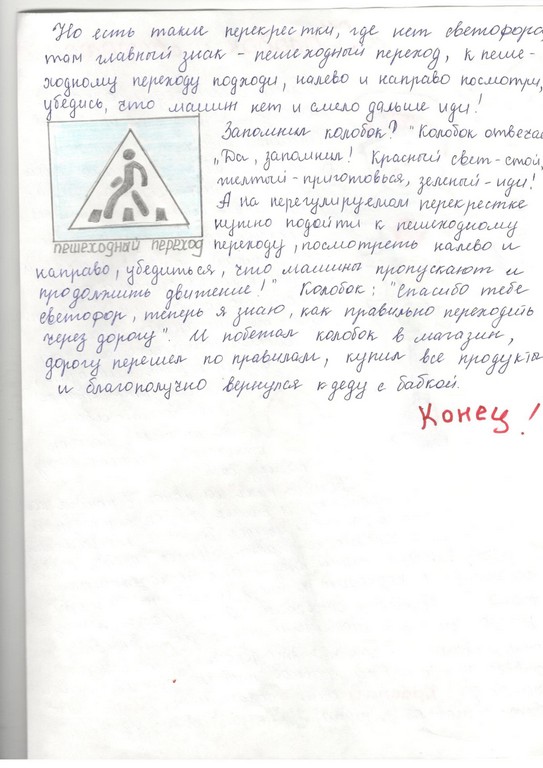 Но есть такие перекрестки, где нет светофора,
там главный знак - пешеходный переход, к пеше-
ходному переходу подходи, налево и направо посмотри,
убедись, что машин нет и смело дальше иди!
Запомнил колобок?" Колобок отвечае
"Да, запомнил! Красный свет-стой,
желтый-приготовься, зеленый-иди!
А на перегулируемом перекрестке
нужно подойти к пешеходному
пешеходный переход переходу, посмотреть налево и
направо, убедиться, что машины пропускают и
продолжить движение!" Колобок: "Спасибо тебе
светофор, теперь я знаю, как правильно переходить
через дорогу". И побежал колобок в магазин,
дорогу перешел по правилам, купил все продукты
и благополучно вернулся к деду с бабкой.
Конец!